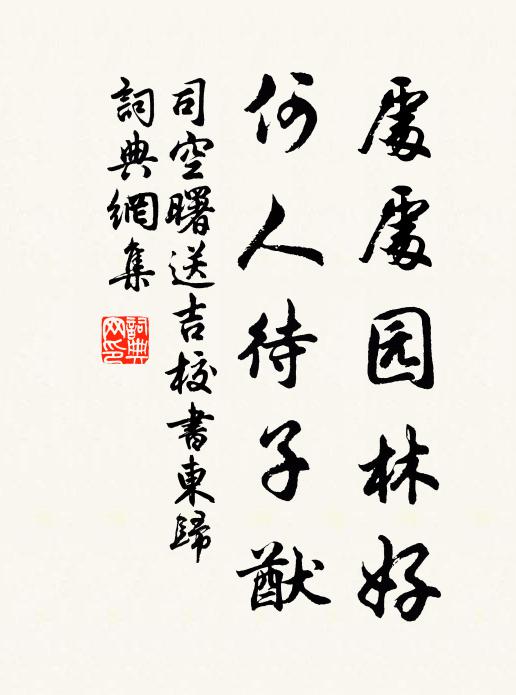 處處园林好
何人待子猷
司空曙送吉校書東歸
詞典網集
詞典网印